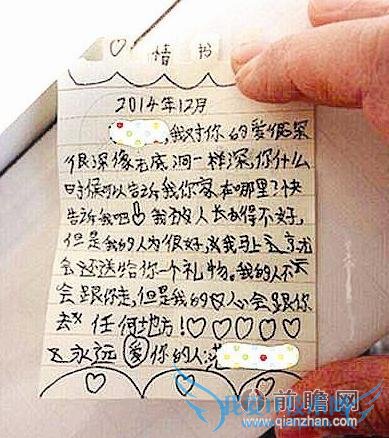 ♡ 情书
2014年12月
我对你的爱很深
很深像无底洞一样深,你什么
时候可以告诉我你家在哪里?快
告诉我吧!我本人长得不好,
但是我的人为很好,
会还送给你一个礼物。我的人不
会跟你走,但是我的心会跟你
去任何地方!♡♡♡♡♡
永远爱你的人:
前瞻网
www.qianzhan.com